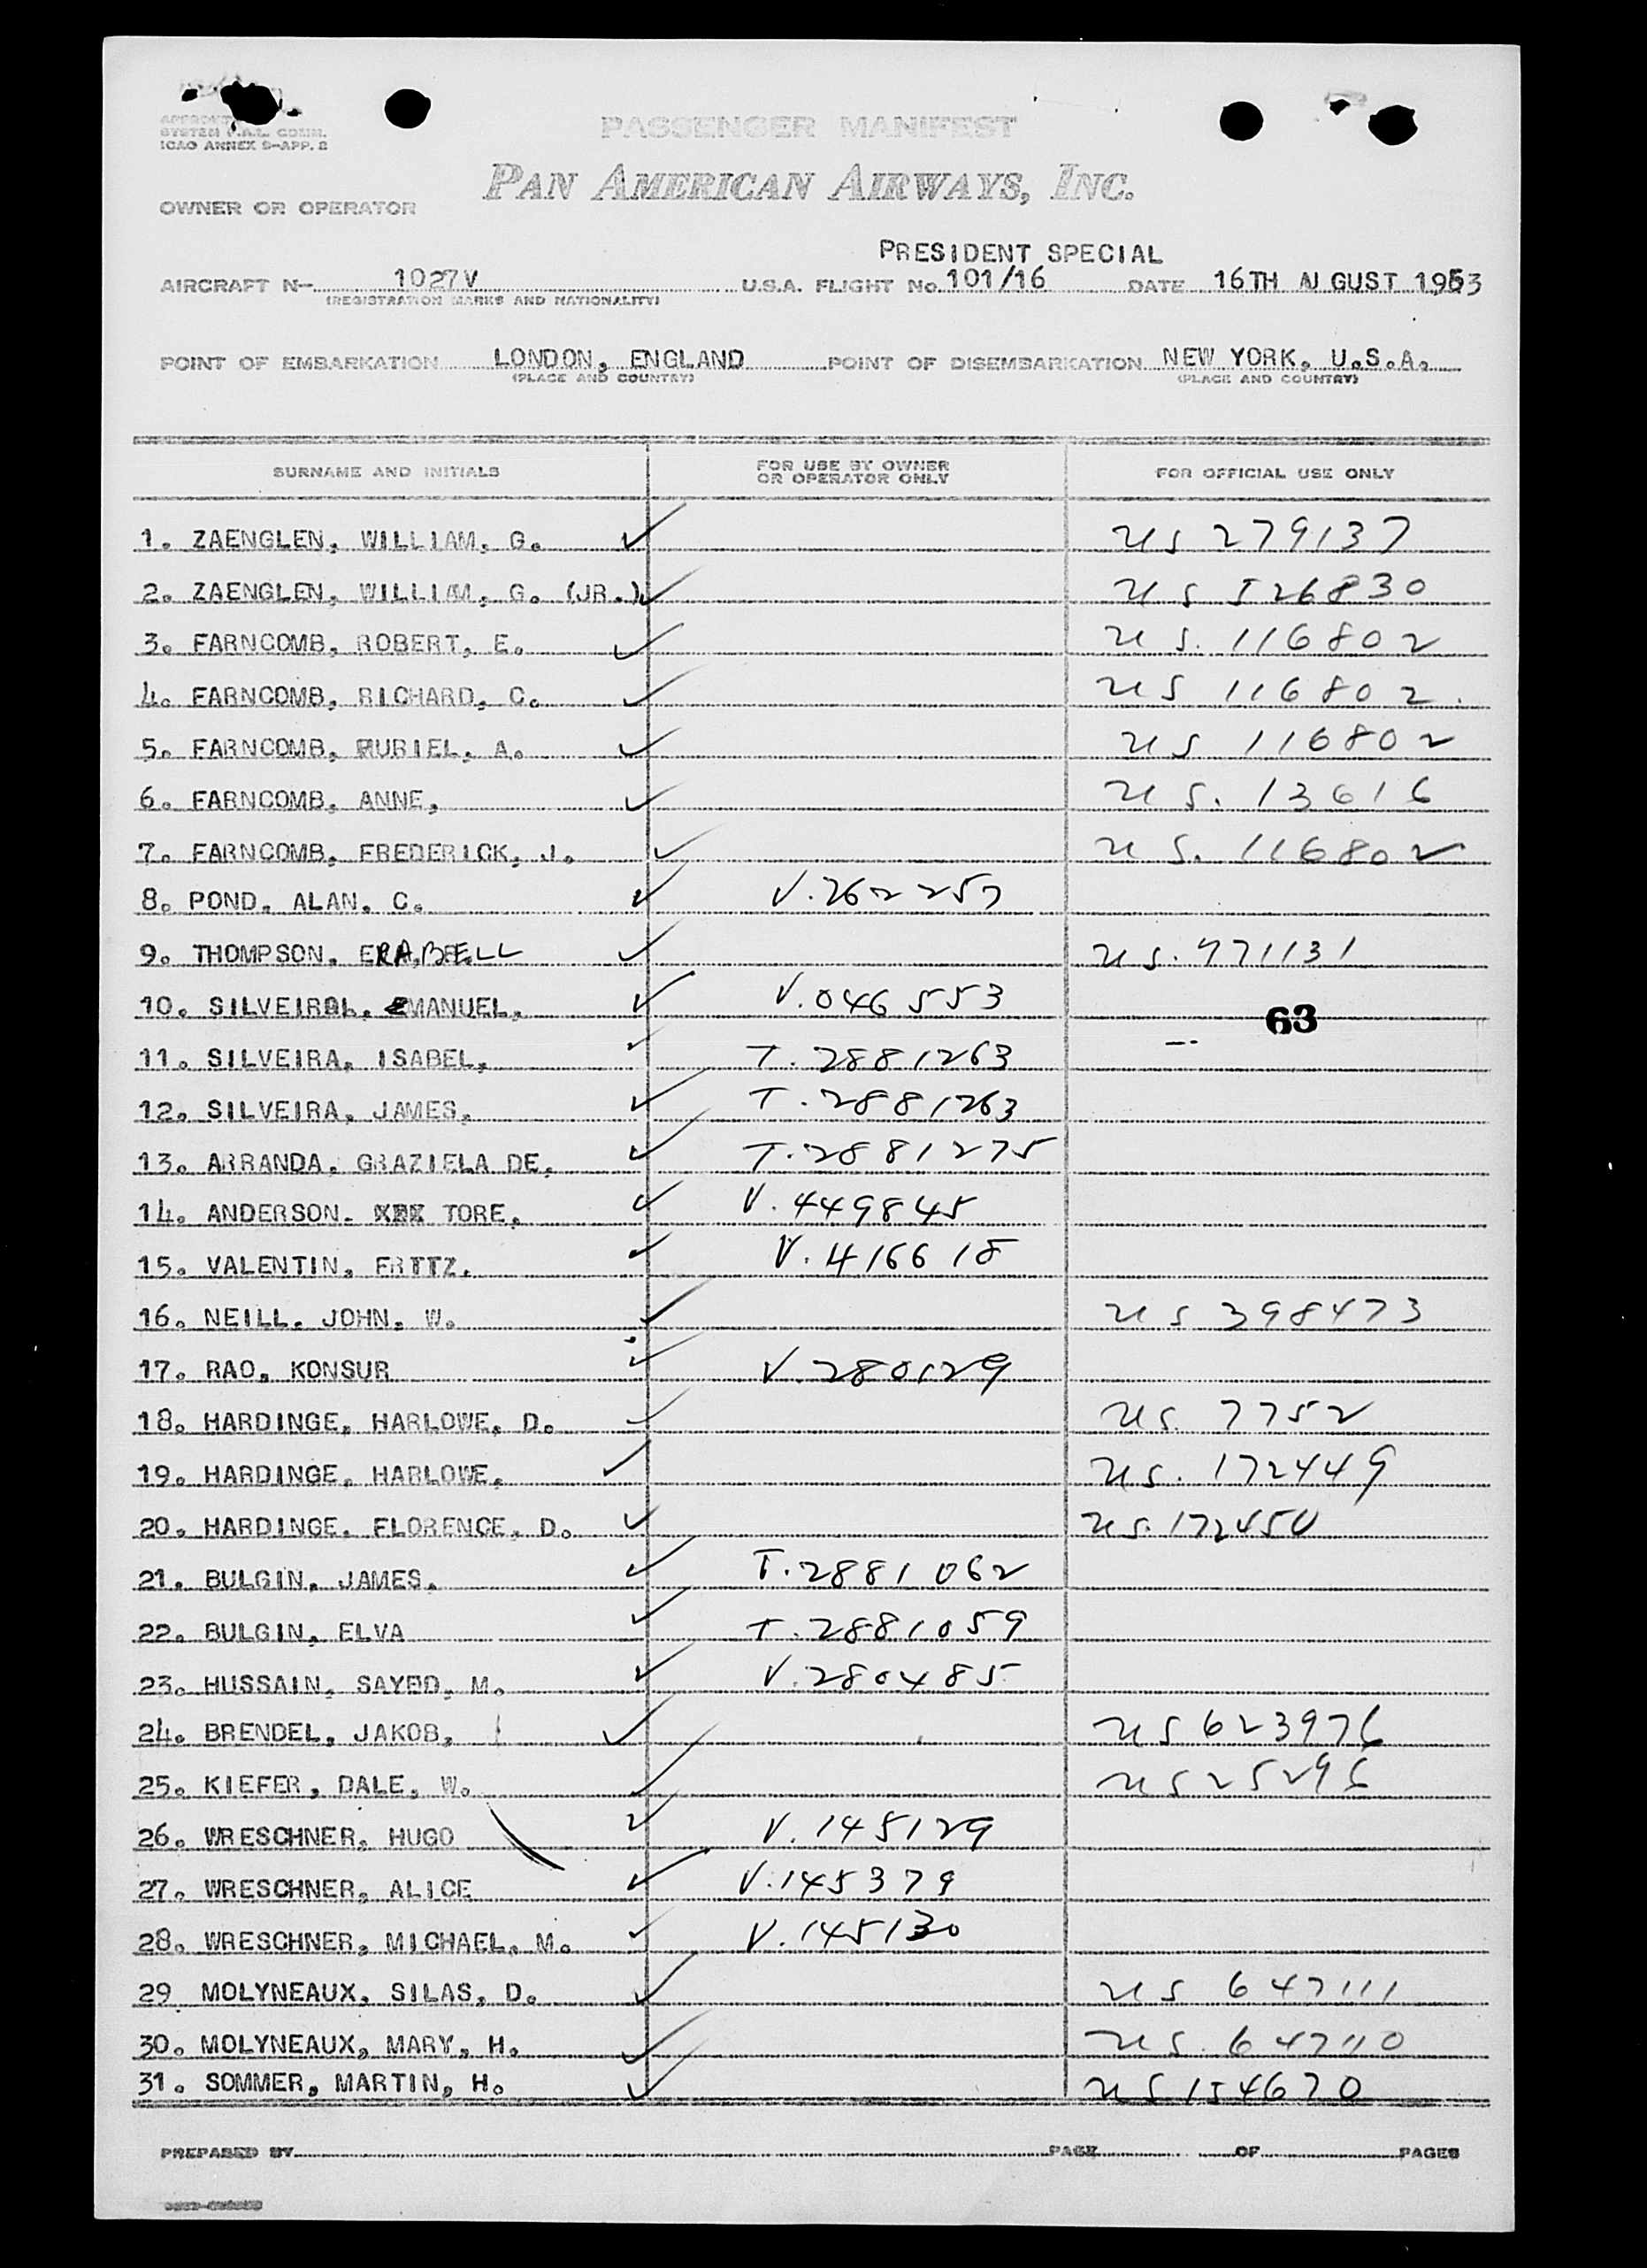 SYSTEM F.A.L. COMM.
ICAO ANNEX 9-APP. 2
PASSENGER MANIFEST
PAN AMERICAN AIRWAYS, INC.
OWNER OR OPERATOR
PRESIDENT SPECIAL
AIRCRAFT N- 1027V U.S.A. FLIGHT No. 101/16 DATE 16TH AUGUST 1953
(REGISTRATION MARKS AND NATIONALITY)
POINT OF EMBARKATION LONDON, ENGLAND POINT OF DISEMBARKATION NEW YORK, U.S.A.
(PLACE AND COUNTRY) (PLACE AND COUNTRY)
SURNAME AND INITIALS FOR USE BY OWNER OR OPERATOR ONLY FOR OFFICIAL USE ONLY
1. ZAENGLEN, WILLIAM, G. ✓ US 279137
2. ZAENGLEN, WILLIAM, G. (JR.) ✓ US 526830
3. FARNCOMB, ROBERT, E. ✓ US. 116802
4. FARNCOMB, RICHARD, C. ✓ US 116802.
5. FARNCOMB, MURIEL, A. ✓ US 116802
6. FARNCOMB, ANNE, ✓ US. 13616
7. FARNCOMB, FREDERICK, J. ✓ US. 116802
8. POND, ALAN, C. ✓ V.262257
9. THOMPSON, ERA,BELL ✓ US.971131
10. SILVEIRA, MANUEL, ✓ V.046553
63
11. SILVEIRA, ISABEL, ✓ T.2881263
12. SILVEIRA, JAMES, ✓ T.2881263
13. ARRANDA, GRAZIELA DE, ✓ T.2881275
14. ANDERSON. TORE, ✓ V.449845
15. VALENTIN, FRITZ, ✓ V.416618
16. NEILL, JOHN, W. ✓ US 398473
17. RAO, KONSUR ✓ V.280129
18. HARDINGE, HARLOWE, D. ✓ US. 7752
19. HARDINGE, HARLOWE, ✓ US. 172449
20. HARDINGE, FLORENCE, D. ✓ US.172450
21. BULGIN, JAMES, ✓ T.2881062
22. BULGIN, ELVA ✓ T.2881059
23. HUSSAIN, SAYED, M. ✓ V.280485
24. BRENDEL, JAKOB, ✓ US 623976
25. KIEFER, DALE, W. ✓ US 25296
26. WRESCHNER, HUGO ✓ V.145129
27. WRESCHNER, ALICE ✓ V.145379
28. WRESCHNER, MICHAEL, M. ✓ V.145130
29 MOLYNEAUX, SILAS, D. ✓ US 647111
30. MOLYNEAUX, MARY, H. ✓ US. 647110
31. SOMMER, MARTIN, H. ✓ US 154670
PREPARED BY PAGE OF PAGES